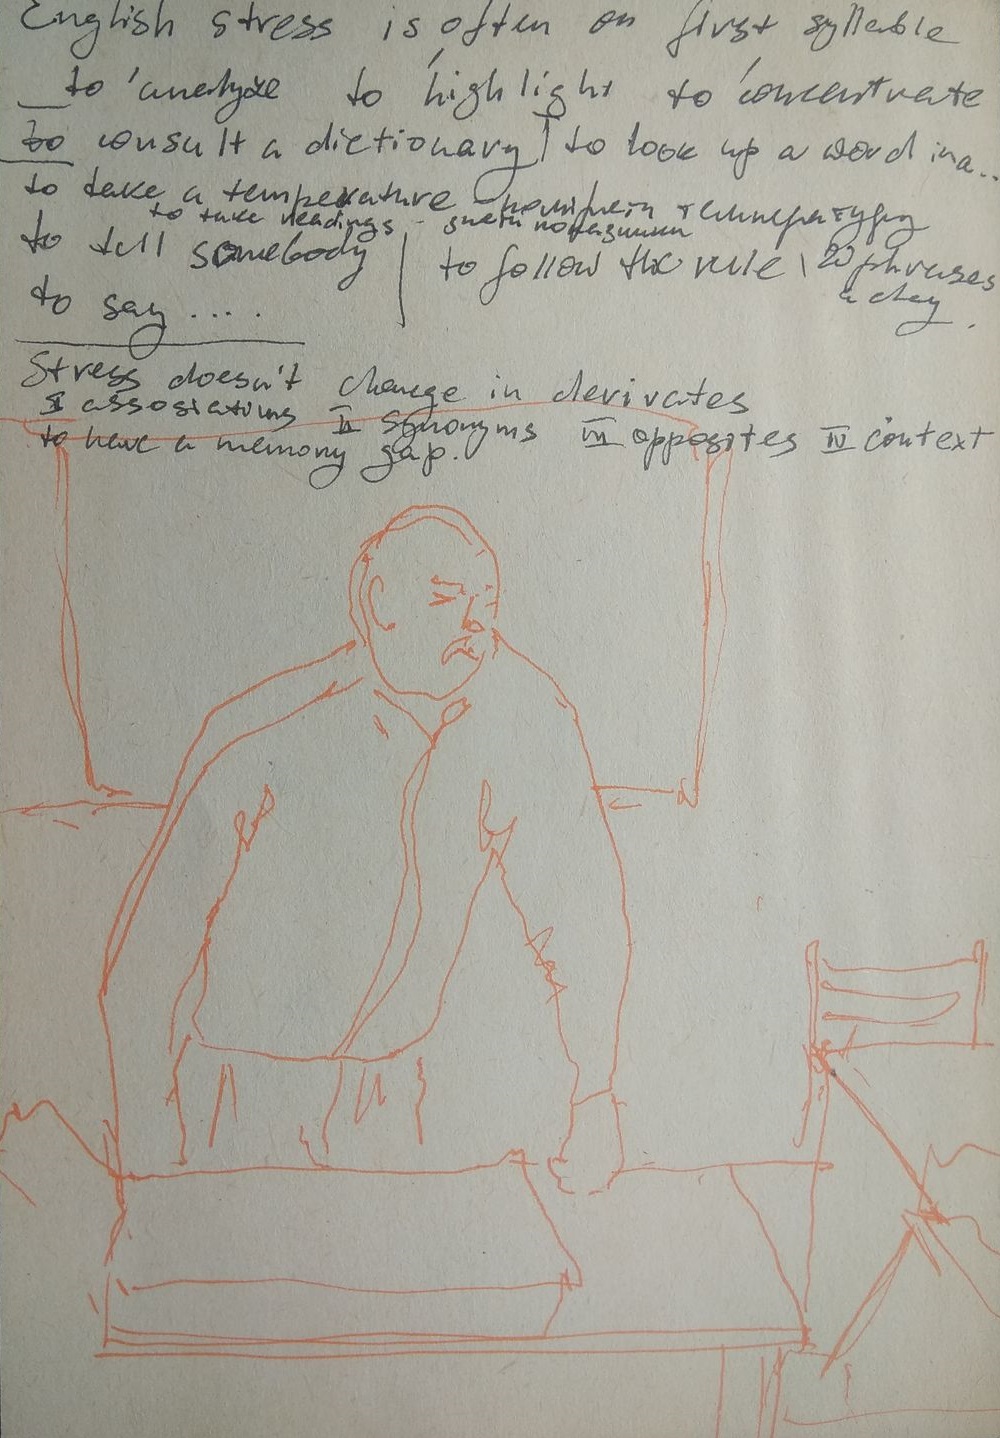 English stress is often on first syllable
to 'analyze to 'highlight to 'concentrate
to consult a dictionary | to look up a word in a...
to take a temperature - померить температуру
to take readings - снять показания
to tell somebody | to follow the rule \ 20 phrases a day.
to say ....
Stress doesn't change in derivates
I assosiations II Synonyms III opposites IV context
to have a memory gap.